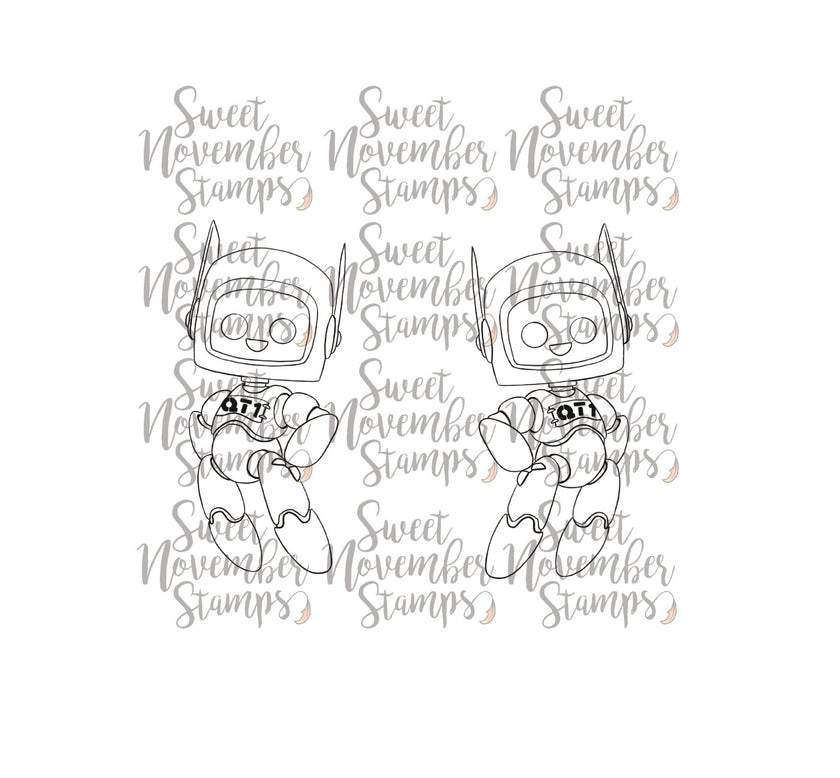 Sweet Sweet Sweet
November November November
Stamps Stamps Stamps
Sweet Sweet Sweet
November November November
Stamps Stamps Stamps
Sweet Sweet Sweet
November November November
QT1 QT1
Stamps Stamps Stamps
Sweet Sweet Sweet
November November November
Stamps Stamps Stamps